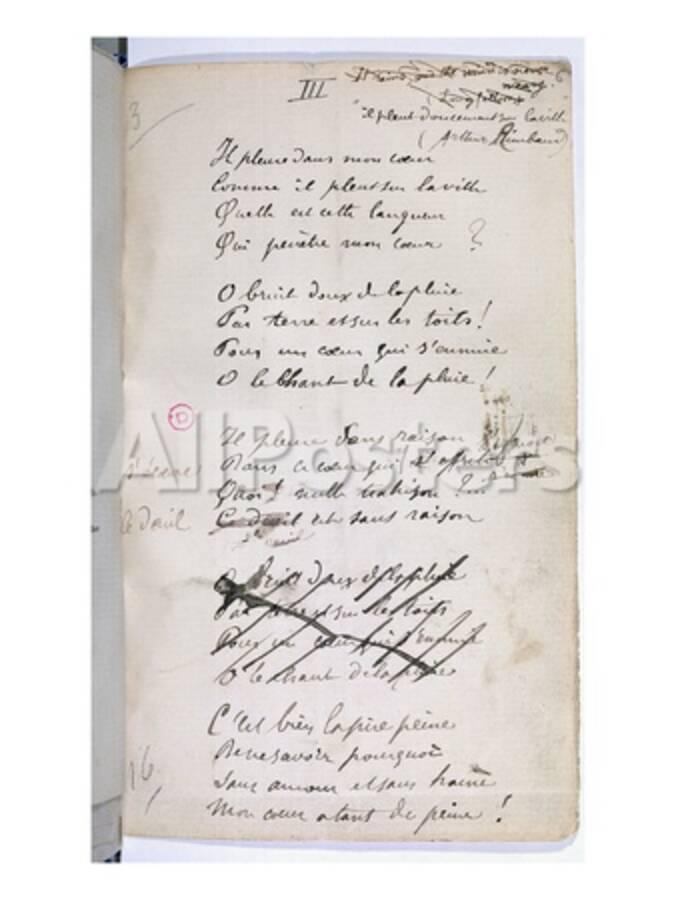 III
It rains, and the wind is never
weary.
(Longfellow)
"il pleut doucement sur la ville
(Arthur Rimbaud)
3
Il pleure dans mon cœur
Comme il pleut sur la ville
Quelle est cette langueur
Qui pénètre mon cœur ?
O bruit doux de la pluie
Par terre et sur les toits !
Pour un cœur qui s'ennuie
O le Chant de la pluie !
D
Il pleure sans raison
Dans ce cœur qui
Quoi ! nulle trahison ?
Ce deuil est sans raison
le deuil
O bruit doux de la pluie
Par terre et sur les toits
Pour un cœur qui s'ennuie
O le chant de la pluie
C'est bien la pire peine
De ne savoir pourquoi
Sans amour et sans haine
Mon cœur a tant de peine !
16
AllPosters